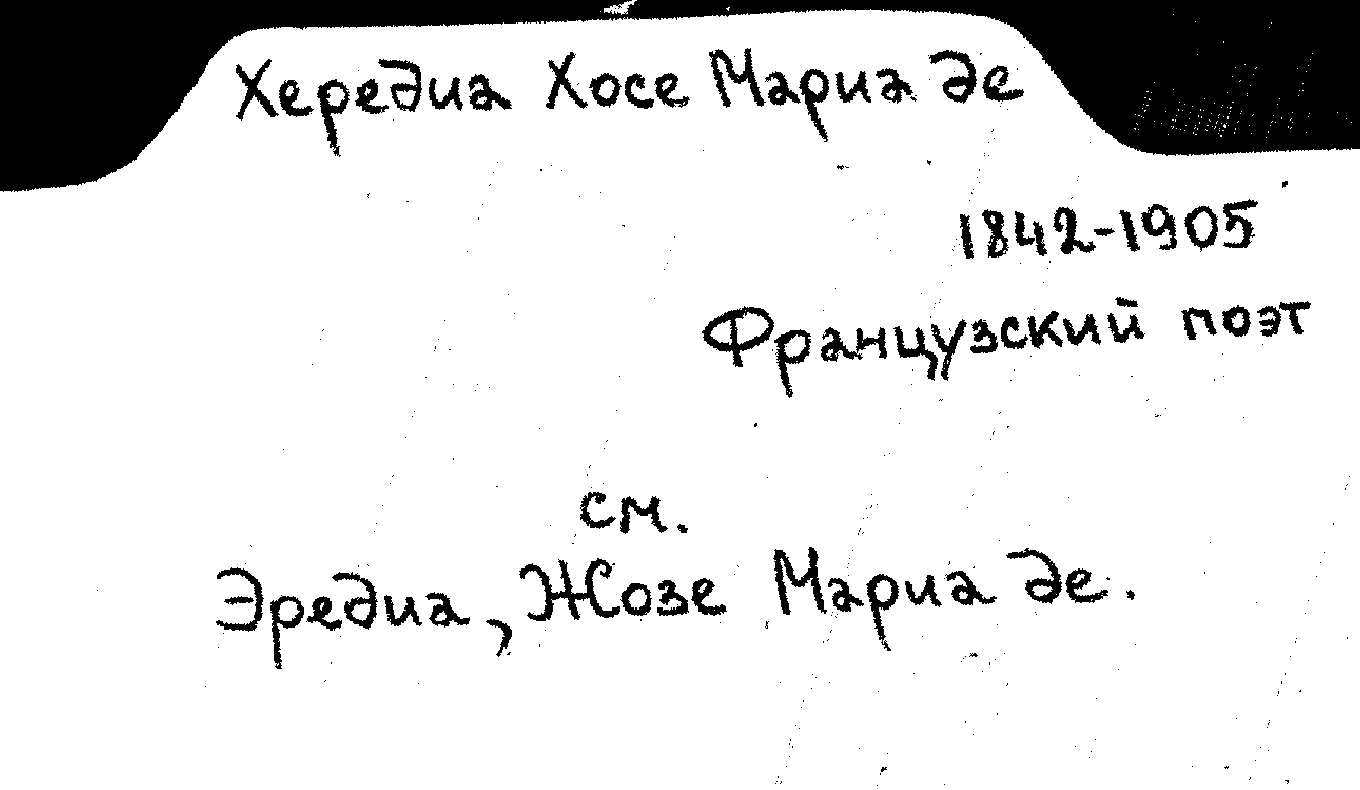 Хередиа Хосе Мариа де
1842-1905
Французский поэт
см.
Эредиа, Жозе Мариа де.